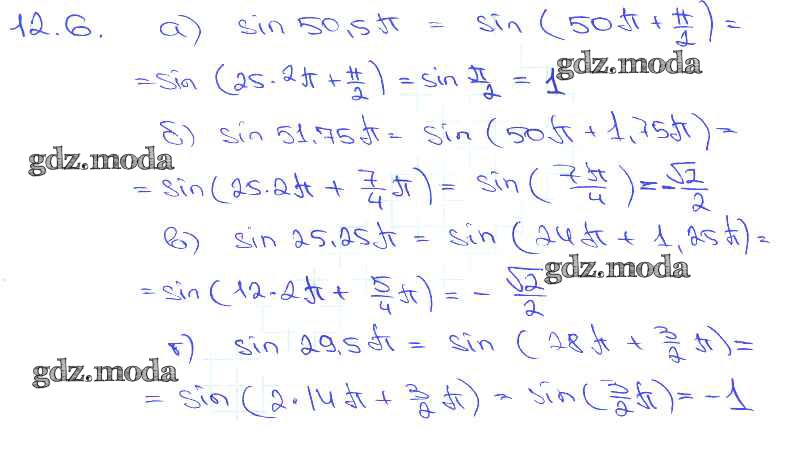 12.6. а) sin 50,5π = sin (50π + π/2) =
= sin (25·2π + π/2) = sin π/2 = 1
gdz.moda
б) sin 51,75π = sin (50π + 1,75π) =
gdz.moda
= sin (25·2π + 7/4 π) = sin (7π/4) = -√2/2
в) sin 25,25π = sin (24π + 1,25π) =
gdz.moda
= sin (12·2π + 5/4 π) = - √2/2
г) sin 29,5π = sin (28π + 3/2 π) =
gdz.moda
= sin (2·14π + 3/2 π) = sin (3/2 π) = -1